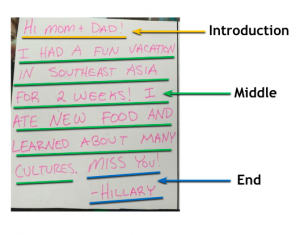 Hi MOM + DAD!
I HAD A FUN VACATION
IN SOUTHEAST ASIA
FOR 2 WEEKS! I
ATE NEW FOOD AND
LEARNED ABOUT MANY
CULTURES. MISS YOU!
-HILLARY
Introduction
Middle
End